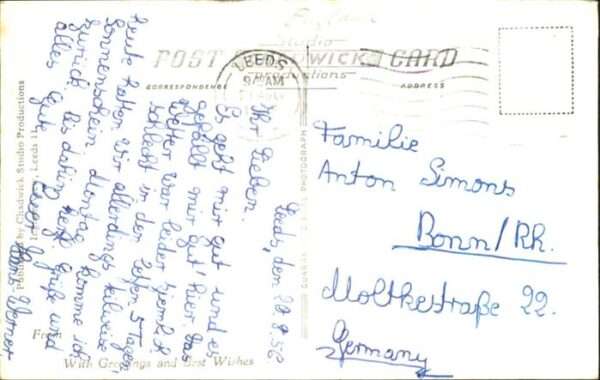 POST CARD
Chadwick Studio Productions
CORRESPONDENCE
ADDRESS
LEEDS
AM
Leeds, den 20.8.56
Ihr Lieben.
Es geht mir gut und es
gefällt mir gut hier. Das
Wetter war leider ziemlich
schlecht in den letzten 5 Tagen,
heute hatten wir allerdings
Sonnenschein. Montag komme ich
zurück. Bis dahin herzl. Grüße und
alles Gute
Hans Werner
Familie
Anton Simons
Bonn/Rh.
Moltkestraße 22.
Germany
Published by Chadwick Studio Productions
Leeds 11
PHOTOGRAPH
From
With Greetings and Best Wishes